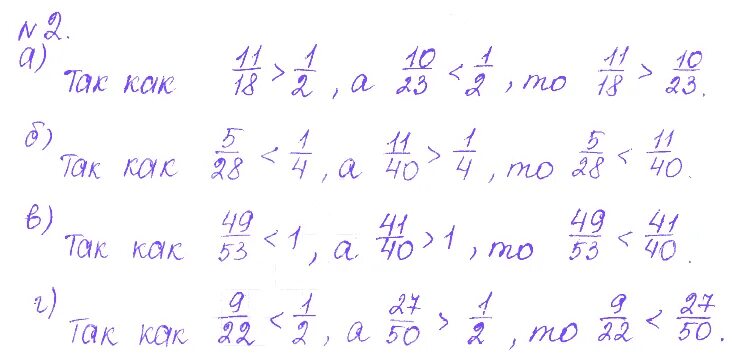 №2.
а) Так как 11/18 > 1/2, а 10/23 < 1/2, то 11/18 > 10/23.
б) Так как 5/28 < 1/4, а 11/40 > 1/4, то 5/28 < 11/40.
в) Так как 49/53 < 1, а 41/40 > 1, то 49/53 < 41/40.
г) Так как 9/22 < 1/2, а 27/50 > 1/2, то 9/22 < 27/50.